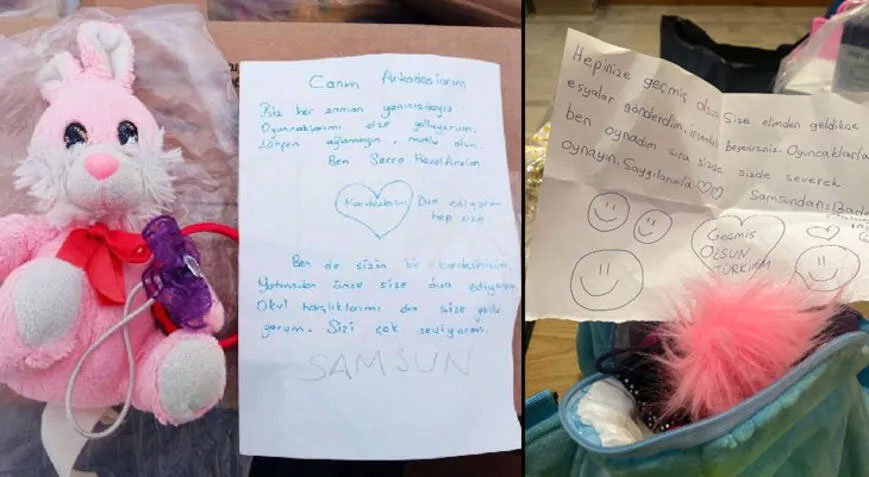 Canım Arkadaşlarım
Biz her zaman yanınızdayız.
Oyuncaklarımı size yolluyorum.
Lütfen ağlamayın, mutlu olun.
Ben Serra
Kardeşlerim
Dua ediyorum
hep size
Ben de sizin bir kardeşinizim.
Yatmadan önce size dua ediyorum.
Okul harçlıklarımı da size yollu
yorum. Sizi çok seviyorum.
SAMSUN
Hepinize geçmiş olsun Size elimden geldikse
eşyalar gönderdim. beğenirsiniz. Oyuncaklarla
ben oynadım sıra sizde sizde severek
oynayın. Saygılarımla
Samsundan:
Geçmiş
OLSUN
TÜRKİYEM